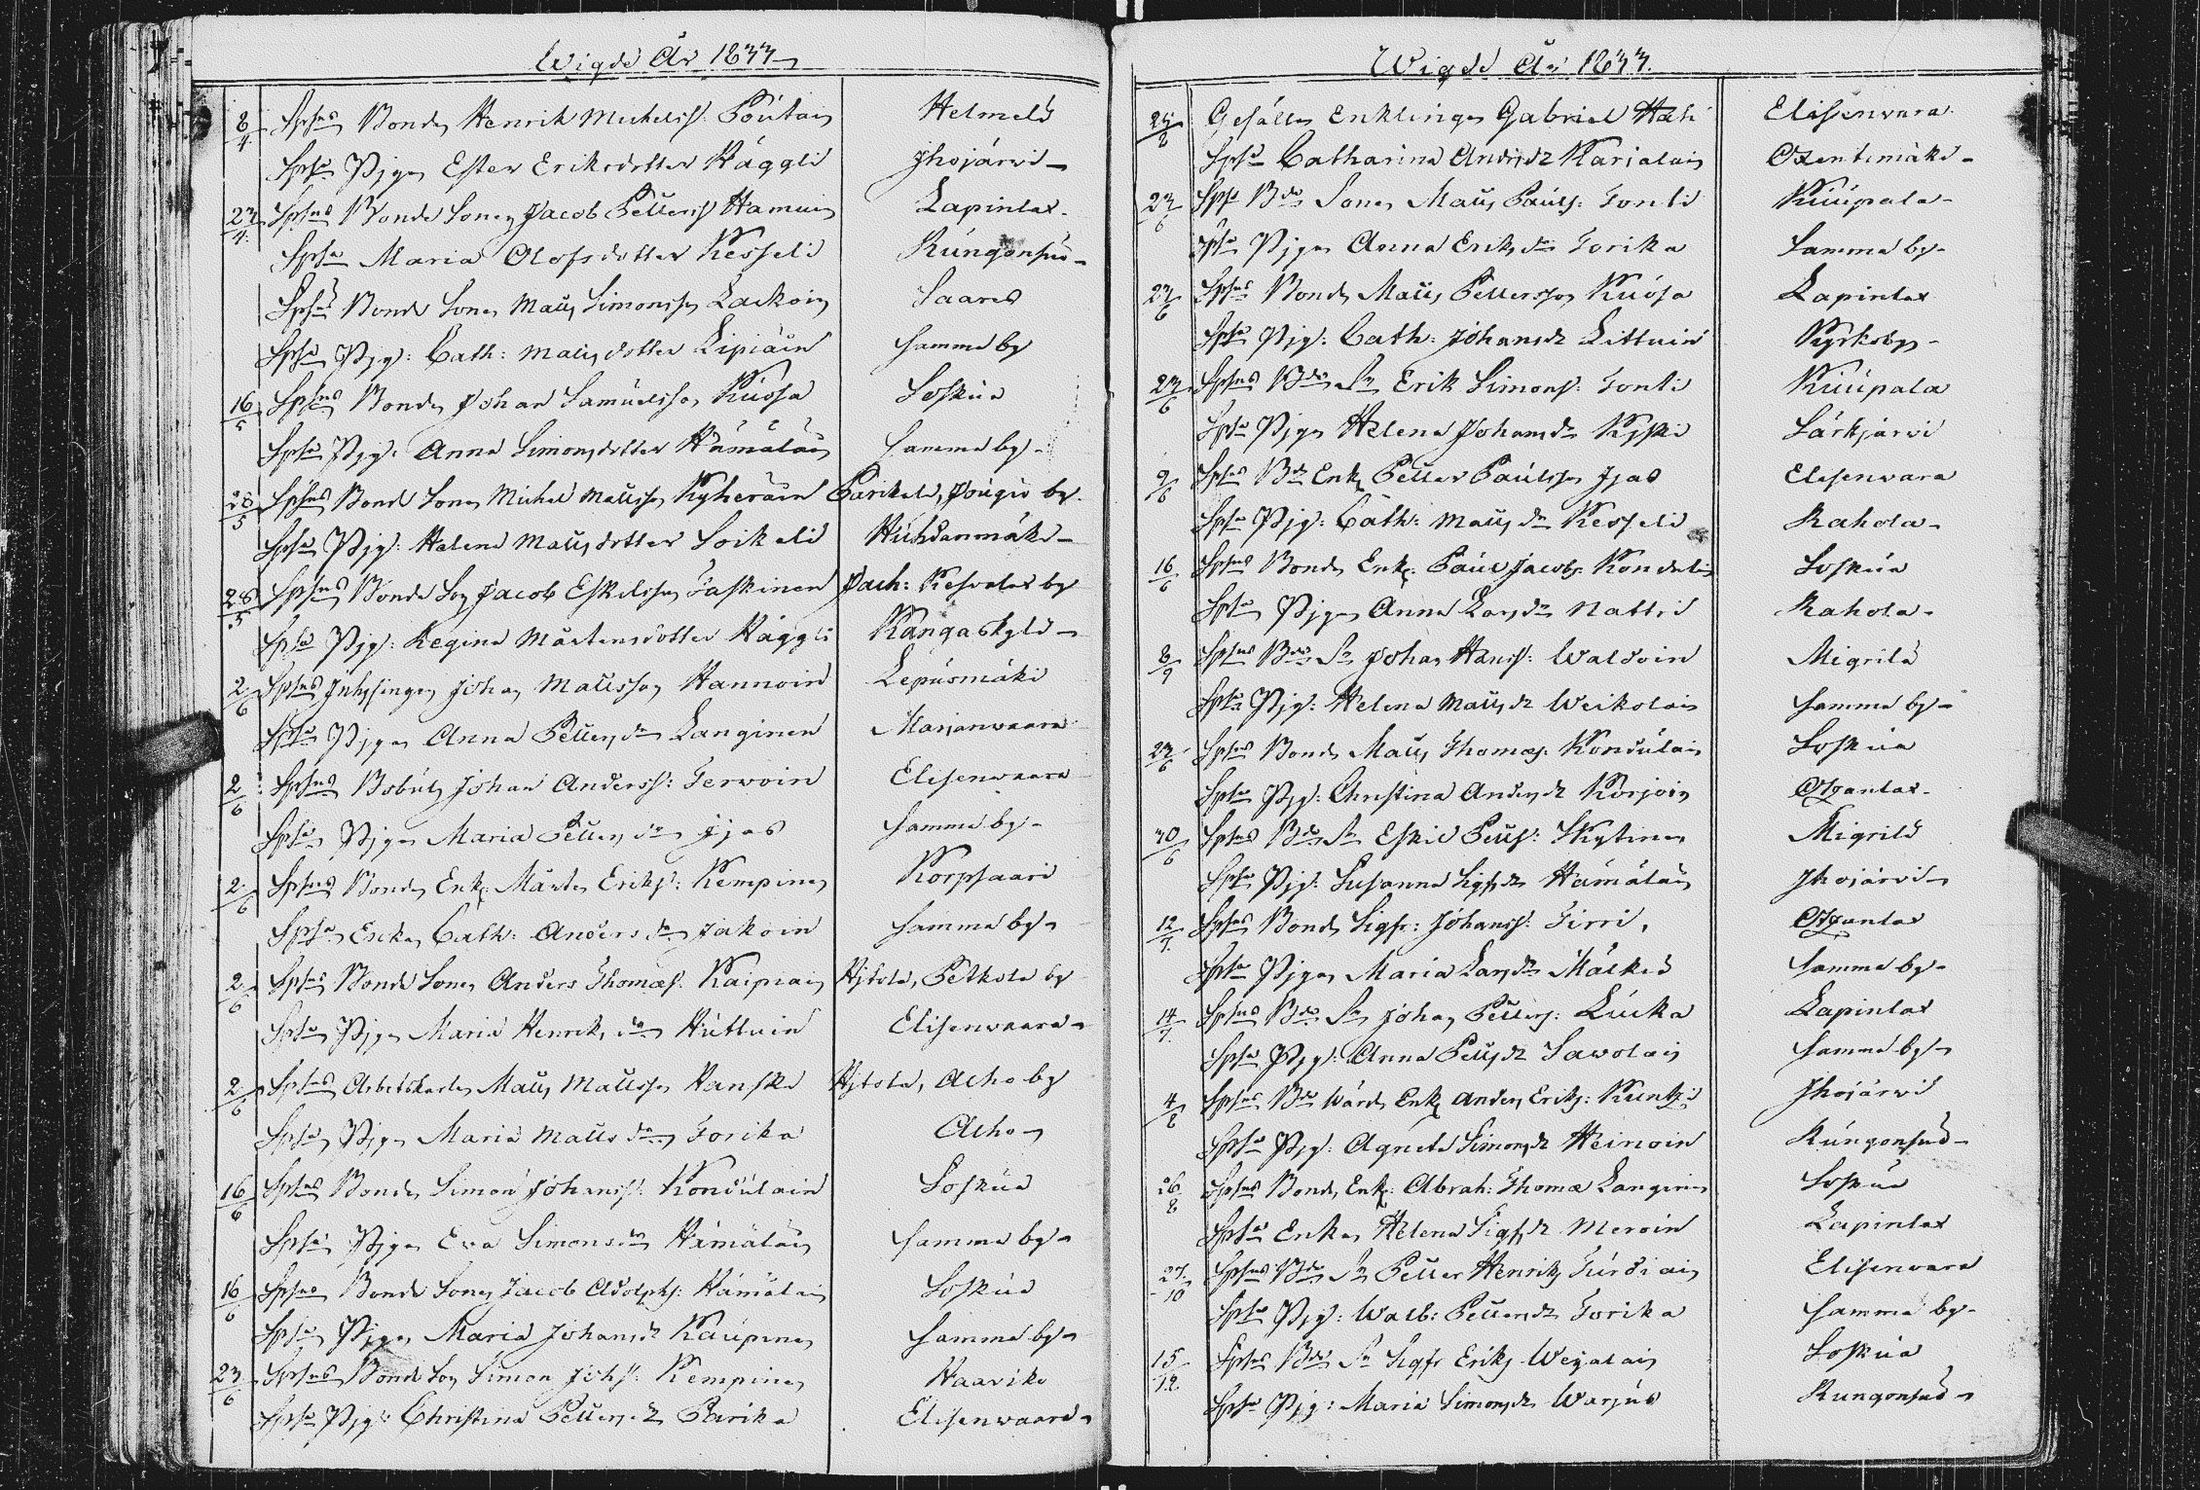 Wigde År 1833
8/4 Spsus Bonden Henrik Michelss: Poutain Helmelä
Spsa Pigan Ester Eriksdotter Häggli Ihojärvi
23/4 Spsus Bonde Sonen Jacob Petterss Hamuin Lapinlax
Spsa Maria Olofsdotter Kesseli Rungonsuo
Spsus Bonde Sonen Matts Simonsson Laukoin Saares
Spsa Pig: Cath: Matts dotter Lipiäin Samma by
16/5 Spsus Bonden Johan Samuelsson Kuosa Soskua
Spsa Pig: Anna Simonsdotter Hämäläin Samma by
28/5 Spsus Bonde Sonen Michel Mattsson Kyheröin Parikala, Pougio by
Spsa Pig: Helena Matts dotter Soikeli Huhdanmäki
28/5 Spsus Bonde Son Jacob Eskelsson Taskinen Jach: Kesvalax by
Spsa Pig: Regina Mårtensdotter Häggli Kangaskylä
2/6 Spsus Inhysingen Johan Mattsson Hannoin Lepusmäki
Spsa Pigan Anna Petters dr Langinen Marjanwaara
2/6 Spsus Bobuln Johan Anderss: Terwoin Elisenwaara
Spsa Pigan Maria Petters dr Ijas Samma by
2/6 Spsus Bonden Enkl: Mårten Eriks: Kempinen Korpsaari
Spsa Enkan Cath: Anders dr Jakoin Samma by
2/6 Spsus Bonde Sonen Anders Thomæs: Kaipiain Hjtola, Petkola by
Spsa Pigan Maria Henriks dr Huttuin Elisenwaara
2/6 Spsus Arbetskarlen Matts Mattsson Hanski Hjtola, Aiho by
Spsa Pigan Maria Matts dr Torika Aiho
16/6 Spsus Bonden Simon Johanss: Kondulain Soskua
Spsa Pigan Eva Simons dr Hämäläin Samma by
16/6 Spsus Bonde Sonen Jacob Adolphs: Hämäläin Soskua
Spsa Pigan Maria Johans dr Kaupinen Samma by
23/6 Spsus Bonde Son Simon Johs: Kempinen Haavika
Spsa Pig: Christina Petters dr Parika Elisenwaara
Wigde År 1833.
Gesällen Enklingen Gabriel Elisenvara
Spsa Catharina Andersdr Karialain Oxentmäki
23/6 Spss Bde Sonen Matts Pauls: Tonti Kuupala
Spsa Pigan Anna Eriks dr Torika Samma by
23/6 Spsus Bonden Matts Pettersson Kuosa Lapinlax
Spsa Pig: Cath: Johans dr Littuin Kyrkoby
23/6 Spsus Bde Sn Erik Simons: Tonti Kuupala
Spsa Pigan Helena Johans dr Kyski Särkjärvi
9/6 Spsus Bde Enkl Petter Paulsson Ijas Elisenvara
Spsa Pig: Cath: Matts dr Kesseli Rahola
16/6 Spsus Bonden Enkl: Paul Jacobs: Kondulain Soskua
Spsa Pigan Anna Lars dr Nattri Rahola
8/9 Spsus Bde Sn Johan Hanss: Waldoin Migrilä
Spsa Pig: Helena Matts dr Weikolain Samma by
23/6 Spsus Bonden Matts Thomæs: Kondulain Soskua
Spsa Pig: Christina Anders dr Korjoin Oxanlax
30/6 Spsus Bde Sn Eskil Petts: Skytinen Migrilä
Spsa Pig: Susanna Sigfs dr Hämäläin Ihojärvi
12/7 Spsus Bonden Sigfr: Johanss: Tirri, Oxanlax
Spsa Pigan Maria Lars dr Mälkiä Samma by
14/7 Spsus Bde Sn Johan Petters: Luika Lapinlax
Spsa Pig: Anna Petts dr Savolain Samma by
4/8 Spsus Bde Wärd Enkl Anders Eriks: Kuntsi Ihojärvi
Spsa Pig: Agneta Simons dr Heinoin Rungonsuo
26/8 Spsus Bonden Enkl: Abrah: Thomæ Langinen Soskua
Spsa Enkan Helena Sigfs dr Meroin Lapinlax
27/10 Spsus Bde Sn Petter Henriks Turdiain Elisenvara
Spsa Pig: Walb: Petters dr Torika Samma by
15/12 Spsus Bde Sn Sigfr Eriks Weijalain Soskua
Spsa Pig: Maria Simons dr Warjus Rungonsuo